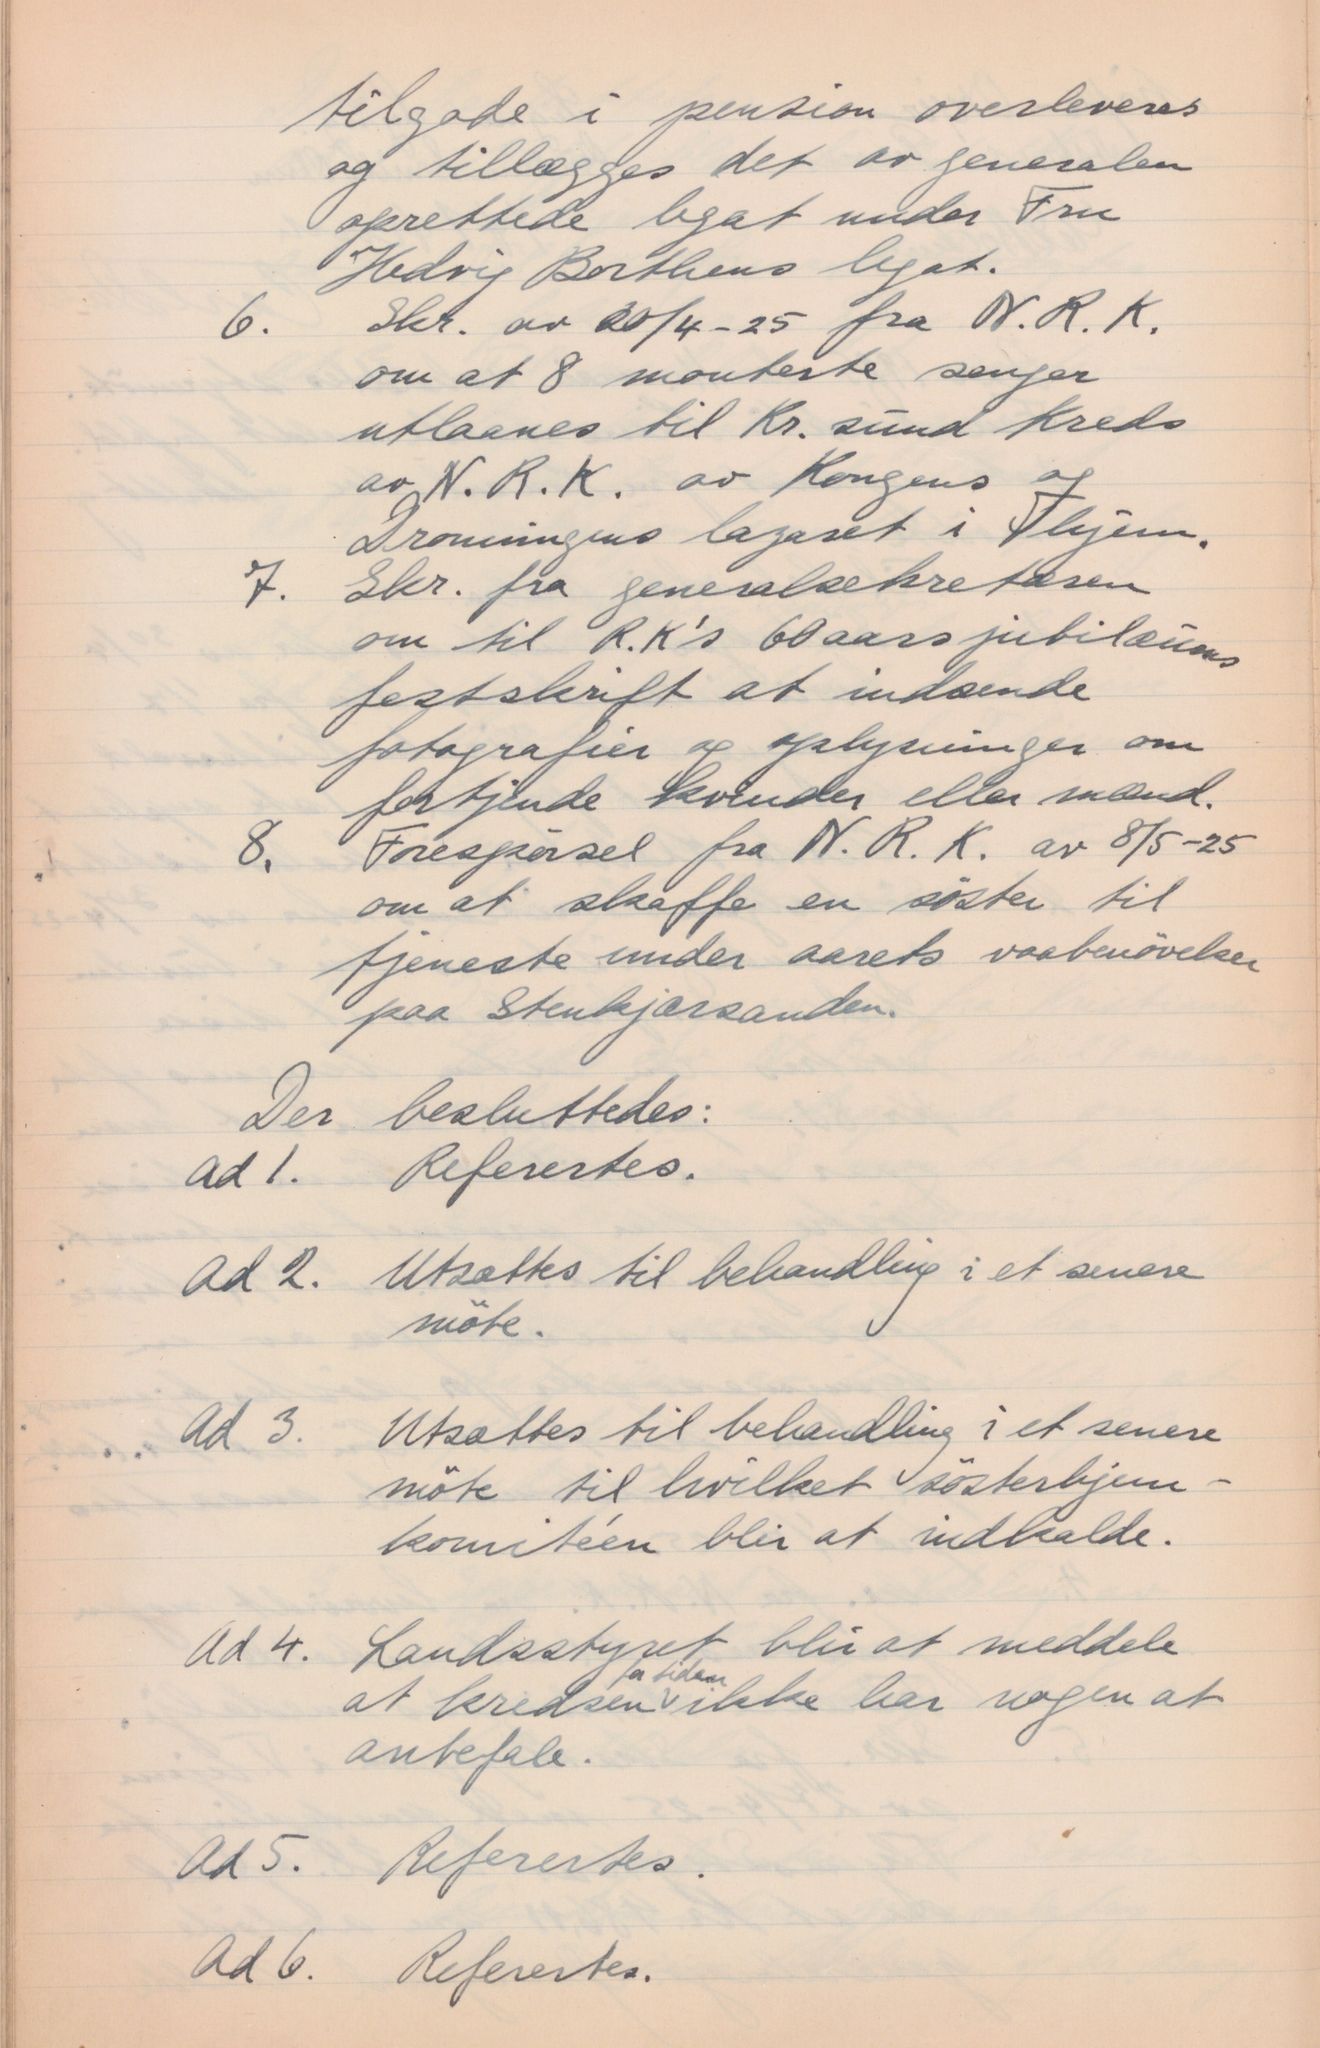 tilgode i pension overleveres
og tillægges det av generalen
oprettede legat under Fru
Hedvig Borthens legat.
6. Skr. av 20/4-25 fra N. R. K.
om at 8 monterte senger
utlaanes til Kr. sund kreds
av N. R. K. av Kongens og
Dronningens lazaret i Thjem.
7. Skr. fra generalsekretæren
om til R.K's 60 aars jubilæums
festskrift at indsende
fotografier og oplysninger om
fortjende kvinder eller mænd.
8. Forespørsel fra N. R. K. av 8/5-25
om at skaffe en söster til
tjeneste under aarets vaabenövelser
paa Stenkjærsanden.
Der besluttedes:
Ad 1. Referertes.
Ad 2. Utsættes til behandling i et senere
möte.
Ad 3. Utsættes til behandling i et senere
möte til hvilket sösterhjem-
komitéen blir at indkalde.
Ad 4. Landsstyret blir at meddele
at kredsen for tiden ikke har nogen at
anbefale.
Ad 5. Referertes.
Ad 6. Referertes.